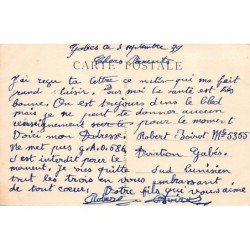 Gabès ce 3 septembre 39
CARTE POSTALE
Chers Parents
J'ai reçu ta lettre ce matin qui ma fait
grand plaisir. Pour moi la santé est très
bonne. On est toujours dans le bled
mais je ne peut te donner aucun
renseignement sur la position pour le moment
Voici mon Adresse Robert Boinot Mle 5355
Ne met pas G.A.O.584 Direction Gabès.
s'est interdit pour le Sud Tunisien
moment. Je vous quitte
tout les trois en vous embrassant
de tout coeur. Votre fils qui vous aime
Robert